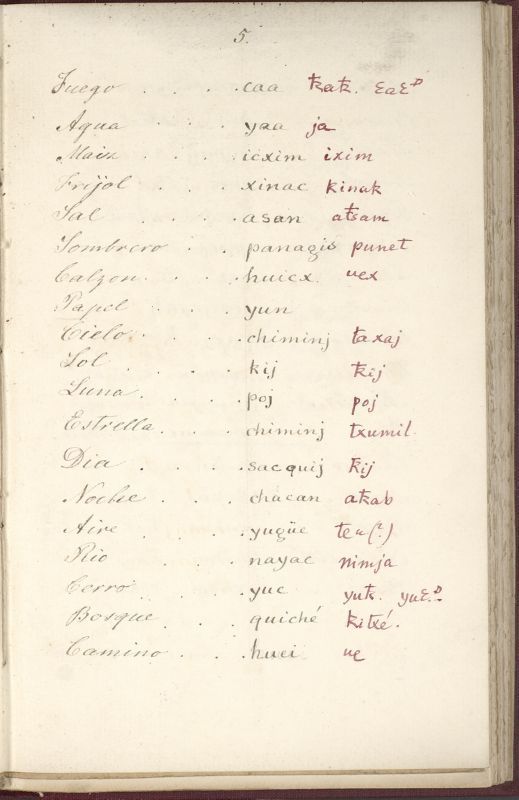 5.
Fuego . . . . caa ꞣaꞣ. ɛaɛᴰ
Agua . . . . yaa ja
Maiz . . . . icxim ixim
Frijol . . . . xinac kinak
Sal . . . . asan aŧsam
Sombrero . . . panagis punet
Calzon . . . . huicx uex
Papel . . . . yun
Cielo . . . . chiminj ŧaxaj
Sol . . . . kij ꞣij
Luna . . . . poj poj
Estrella . . . . chiminj txumil.
Dia . . . . sacquij ꞣij
Noche . . . . chacan aꞣab
Aire . . . . yugüe
Rio . . . . nayac nimja
Cerro . . . . yuc yuꞣ. yuɛ.ᴰ
Bosque . . . . quiché ꞣitxé.
Camino . . . . huei ue